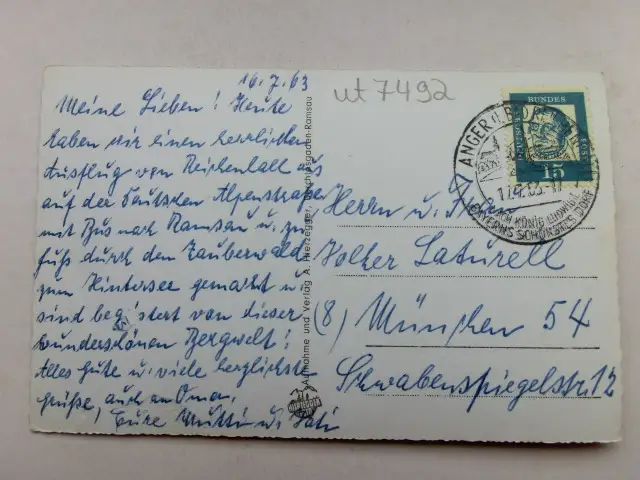 16.7.63
Meine Lieben! Heute
haben wir einen herrlichen
Ausflug von Reichenhall aus
auf der Deutschen Alpenstraße
mit Bus nach Ramsau u. zu
Fuß durch den Zauberwald
zum Hintersee gemacht u.
sind begeistert von dieser
wunderschönen Bergwelt!
Alles Gute u. viele herzlichste
Grüße, auch an Oma,
Eure Mutti u. Vati
Aufnahme und Verlag A. Hierzegger, Berchtesgaden-Ramsau
ut 7492
BUNDES
15
ANGER
KÖNIG LUDWIG
BAYERNS SCHÖNSTES DORF
Herrn u. Frau
Volker Laturell
(8) München 54
Schwabenspiegelstr. 12